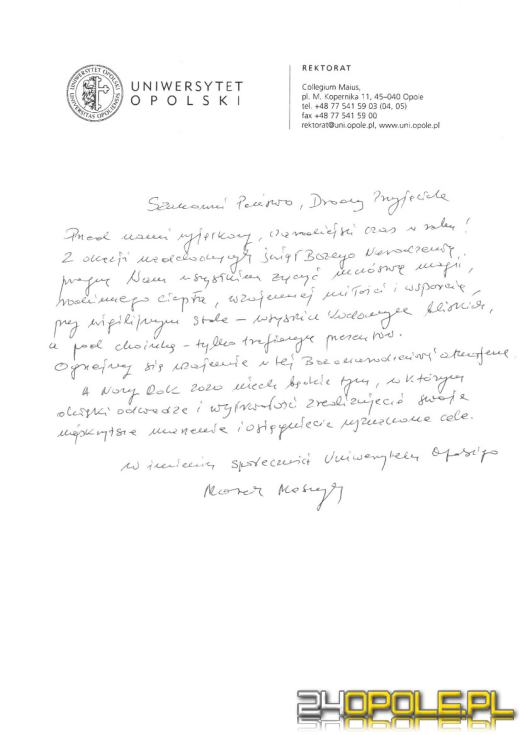 REKTORAT
UNIWERSYTET OPOLSKI
UNIVERSITAS OPOLIENSIS
UNIWERSYTET
OPOLSKI
Collegium Maius,
pl. M. Kopernika 11, 45–040 Opole
tel. +48 77 541 59 03 (04, 05)
fax +48 77 541 59 00
rektorat@uni.opole.pl, www.uni.opole.pl
Szanowni Państwo, Drodzy Przyjaciele
Przed nami wyjątkowy, czas w roku!
Z okazji nadchodzących świąt Bożego Narodzenia,
pragnę Wam wszystkim życzyć mnóstwo magii,
rodzinnego ciepła, wzajemnej miłości i wsparcia,
przy wigilijnym stole – wszystkich kochanych bliskich,
a pod choinką – tylko trafionych prezentów.
się wzajemnie w tej Bożonarodzeniowej atmosferze.
A Nowy Rok 2020 niech będzie tym, w którym
dzięki odwadze i wytrwałości zrealizujecie swoje
największe marzenia i osiągniecie wyznaczone cele.
w imieniu społeczności Uniwersytetu Opolskiego
Marek Masnyk
24OPOLE.PL